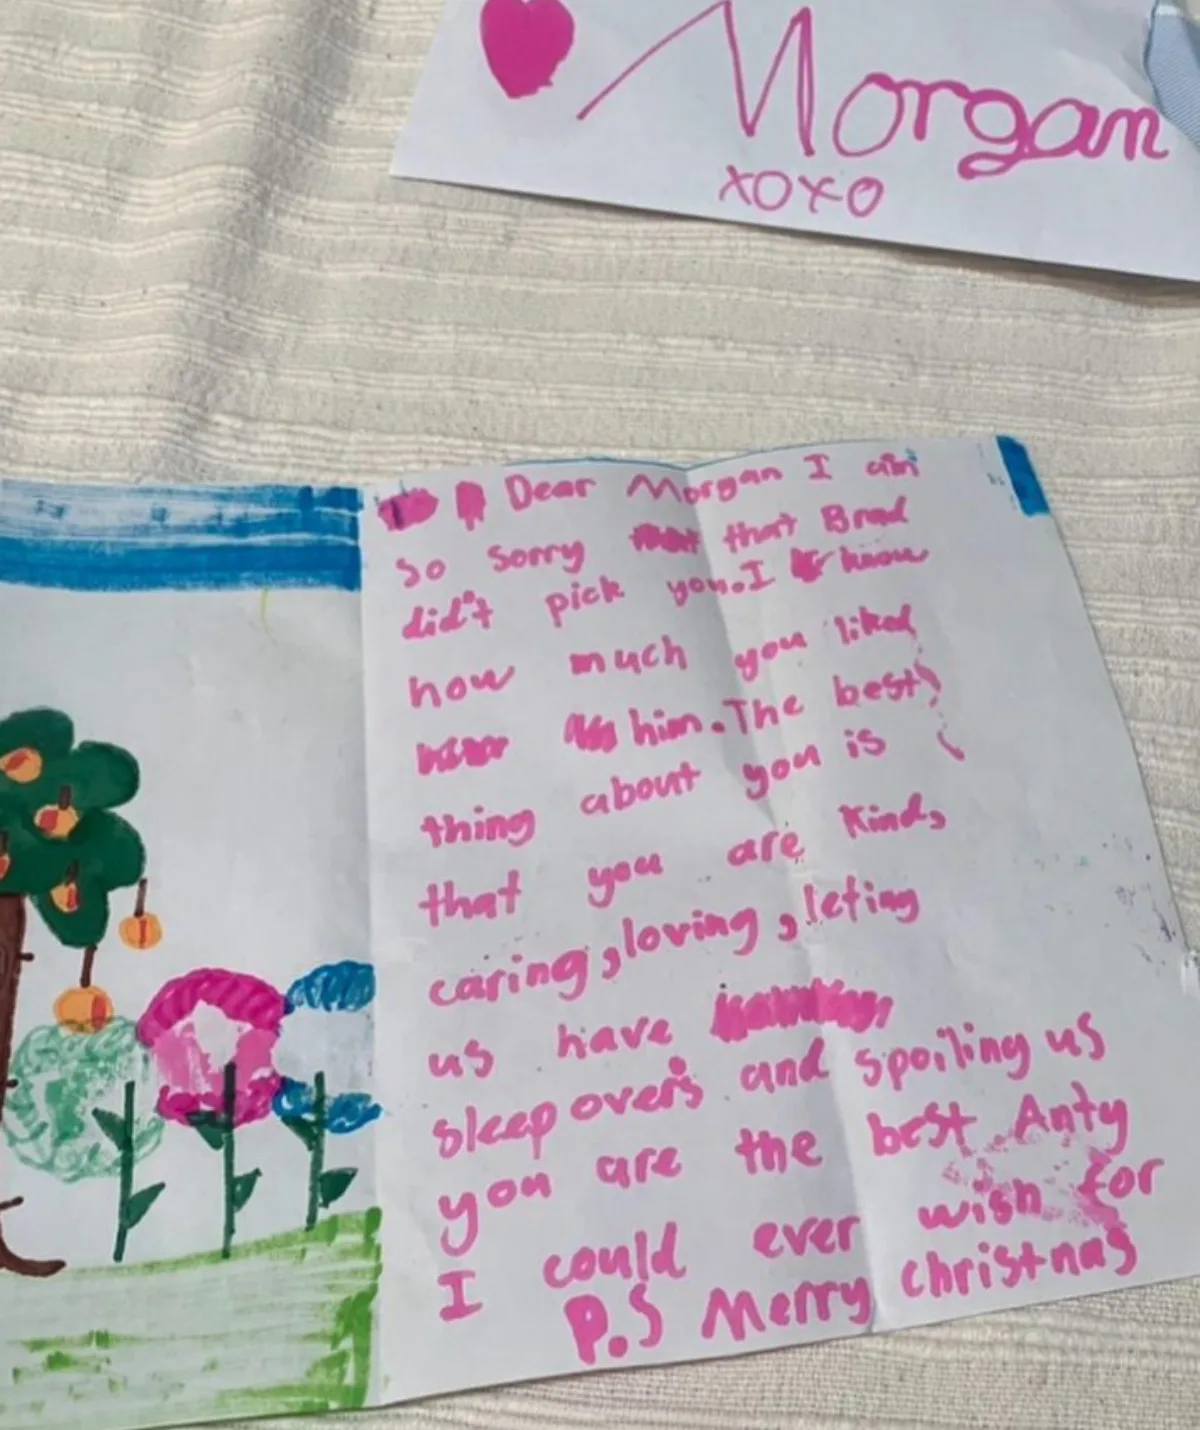 Morgan
xoxo
Dear Morgan I am
so sorry that Brad
did't pick you. I know
how much you liked
him. The best
thing about you is
that you are kind,
caring, loving, leting
us have
sleepovers and spoiling us
you are the best Anty
I could ever wish for
P.S Merry christmas